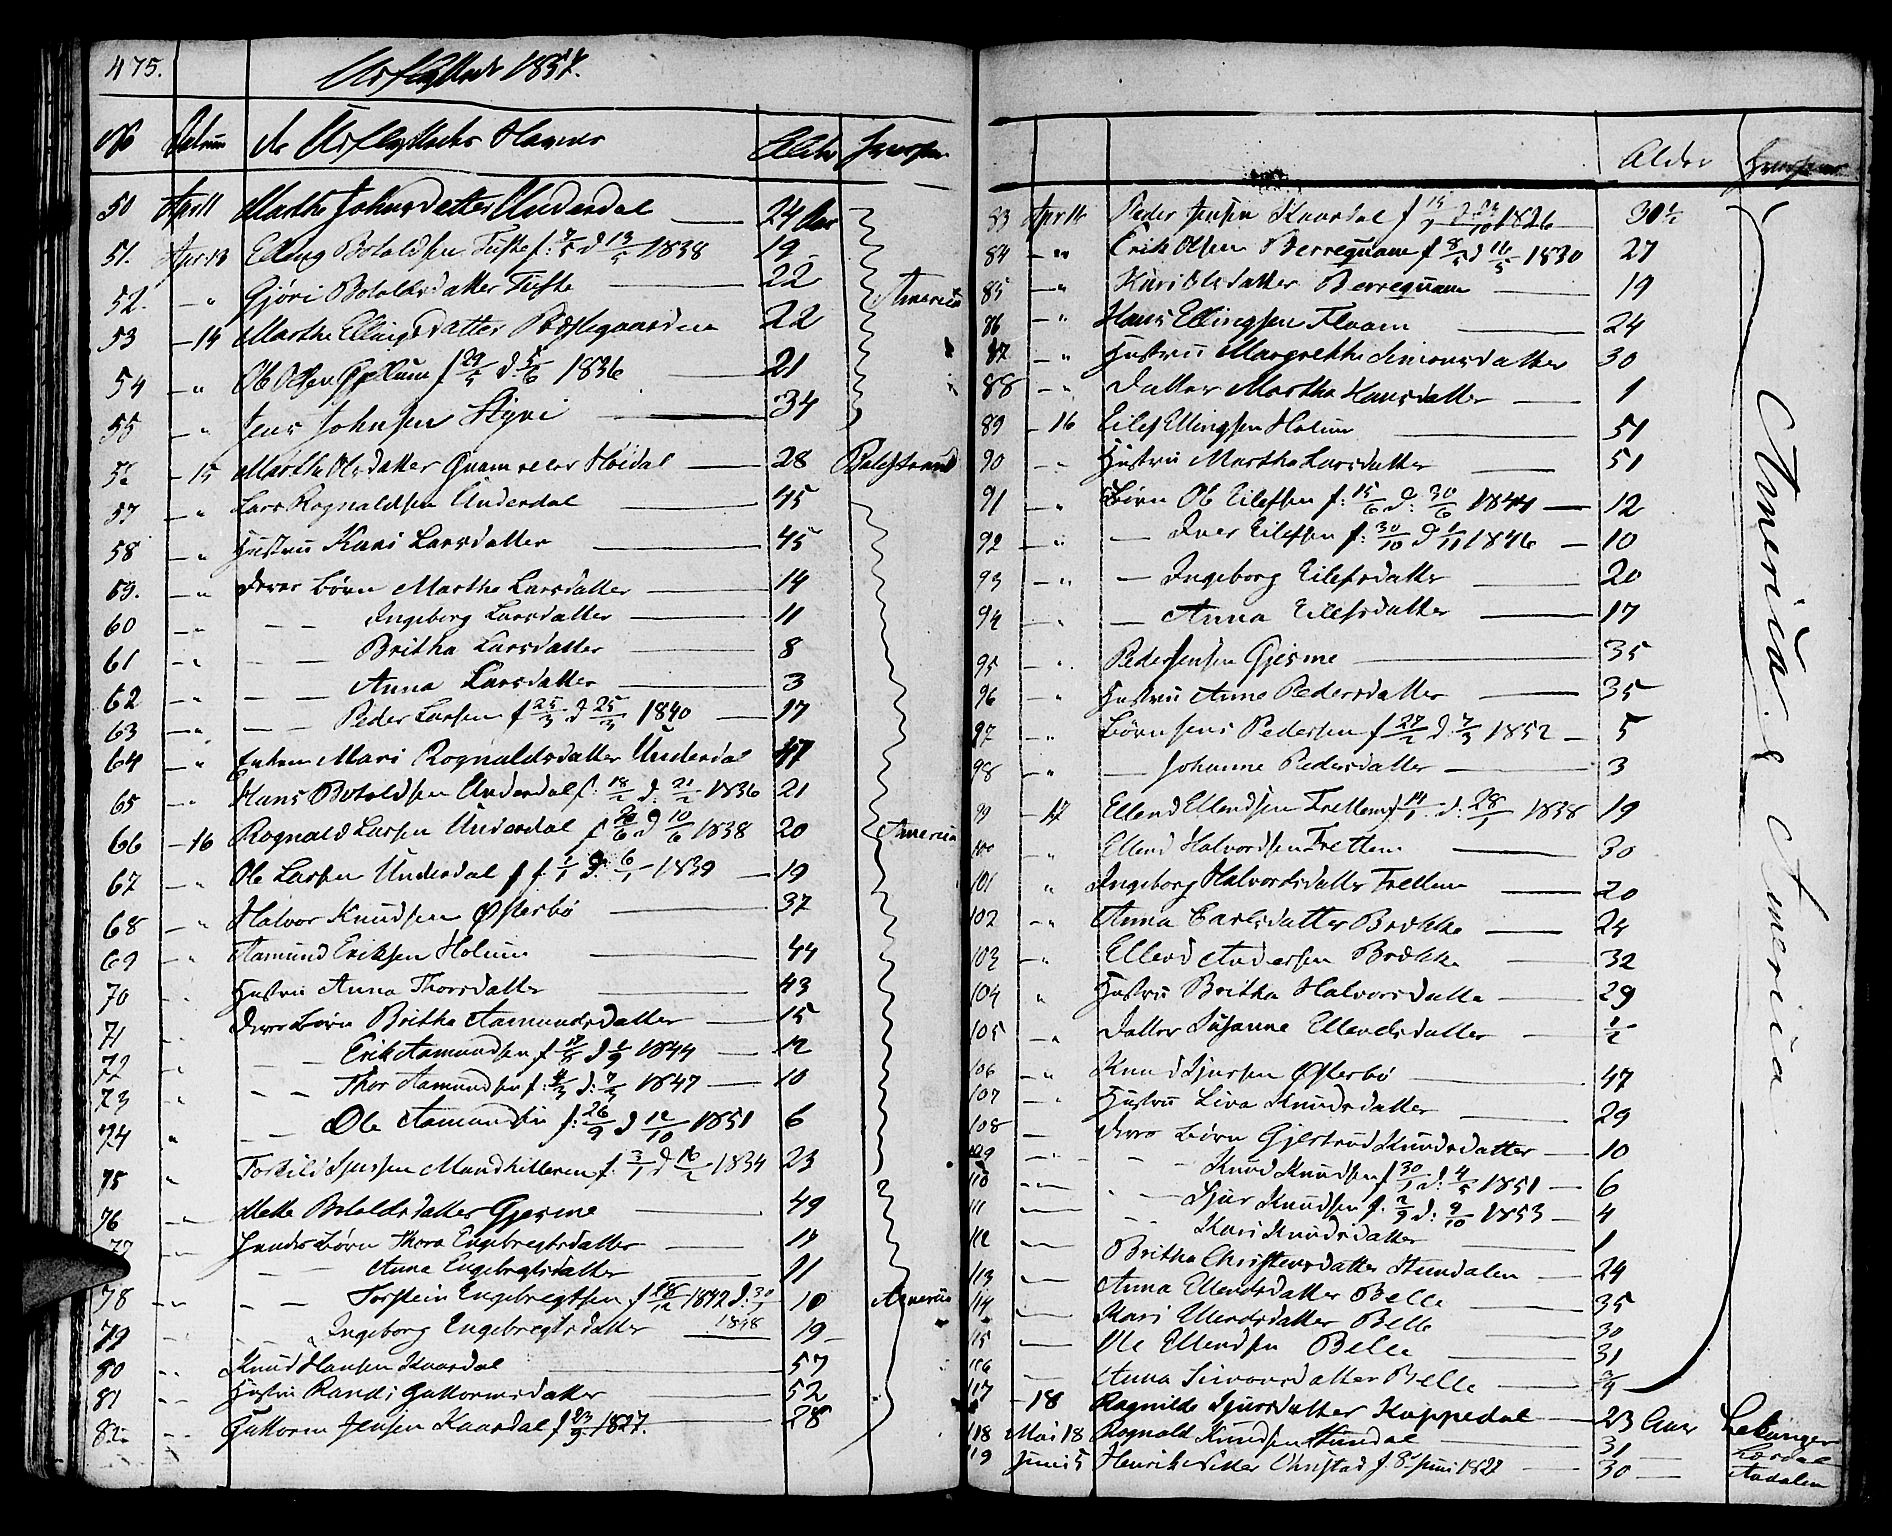 475.
Udflyttede 1857.
No Datum de Udflyttedes Navne Alder Hvorhen
50 April 11 Martha Johnsdatter Underdal 24 Aar
51. Apr. 13 Elling Botoldsen Tufte f: 7/5 d 13/5 1838 19
52. - " Gjøri Botolds datter Tufte 22 America
53 - 14 Martha Ellingsdatter Prestegaarden 22
54 - " Ole Olsen f 29/5 d: 5/6 1836 21
55 - " Jens Johnsen Styvi 34
56 - 15 Martha Olsdatter Quam Høidal 28 Balestrand
57 - " Lars Rognaldsen Underdal 45
58 - " Hustru Kari Larsdatter 45
59. - " deres Børn Martha Larsdatter 14
60 - " Ingeborg Larsdatter 11
61 - " Britha Larsdatter 8
62 - " Anna Larsdatter 3
63 - " Peder Larsen f 25/3 d 25/3 1840 17
64 - " Enken Mari Rognaldsdatter Underdal 47
65 - " Hans Botoldsen Underdal f: 18/2 d: 21/2 1836 21
66 - 16 Rognald Larsen Underdal f d 10/6 1838 20 America
67 - " Ole Larsen Underdal f 1/1 d: 6/1 1839 19
68 - " Halvor Knudsen Østerbø 37
69 " Aamund Eriksen Holum 44
70 " Hustru Anna Thorsdatter 43
71 " deres Børn Britha Aamundsdatter 15
72 " Erik Aamundsen f d 1/9 1844 12
73 " Thor Aamundsen f: 4/3 d: 7/3 1847 10
74 " Ole Aamundsen f: 26/9 d 12/10 1851 6
75 " Torkild Sjursen f. 3/1 d 16/2 1834 23
76 - " Mette Botoldsdatter Gjesme 49
77 - " hendes Børn Thora Engebregtsdatter 17
Anna Engebregtsdatter 21
78 - " Torstein Engebregtsen f 28/12 1842 d: 30/1 10 America
79 " Ingeborg Engebregtsdatter 1848 19
80 - " Knud Hansen Kaardal 57
81 - " Hustru Randi Guttormsdatter 52
82 - " Guttorm Jensen Kaardal f 23/9 1827. 28
Alder Hvorhen
83 Apr 16 Peder Jensen Kaardal f 1826 30½
84 - " Erik Olsen Berrequam f 8/5 d 16/5 1830 27
85 - " Kari Olsdatter Berrequam 19
86 - " Hans Ellingsen Flaam 24
87 - " Hustru Margrethe Simonsdatter 30
88 - " Datter Martha Hansdatter 1
89 - 16 Eilef Ellingsen Holum 51
90 - " Hustru Martha Larsdatter 51
91 " Børn Ole Eilefsen f: 15/6 d: 30/6 1844 12
92 - " Iver Eilefsen f: 30/10 d 1/11 1846 10
93 - " Ingeborg Eilefsdatter 20
94 - " Anna Eilefsdatter 17
95 - " Peder Jensen Gjesme 35
96 - " Hustru Anna Pedersdatter 35
97 - " Børn Jens Pedersen f 27/2 d. 7/3 1852 5
98 - " Johanne Pedersdatter 3
99 - 17 Ellend Ellendsen Frettem f 14/1 d: 28/1 1838 19
100 " Ellend Halvordsen Frettem 30
101 " Ingeborg Halvordsdatter Frettem 20
102 - " Anna Carlsdatter Brække 24
103 - " Ellend Andersen Brække 32
104 " Hustru Britha Halvorsdatter 29
105 - " Datter Susanne Ellendsdatter ½
106 - " Knud Sjursen Østerbø 47
107 - " Hustru Liva Knudsdatter 29
108 deres Børn Gjertrud Knudsdatter 10
109 - " Knud Knudsen f 30/1 d: 4/5 1851 6
110 - " Sjur Knudsen f: 2/9 d: 9/10 1853 4
111 - " Kari Knudsdatter 1
112 - " Britha Christensdatter Stundalen 24
113 - " Anna Ellendsdatter Belle 35
114 - " Kari Ellendsdatter Belle 30
115 - " Ole Ellendsen Belle 31
116 - " Anna Simonsdatter Belle 3/4
America & America
117 - 18 Ragnilde Sjursdatter Kappedal 23 Aar Lekanger
118 Mai 18 Rognald Knudsen Stundal 31 Lærdal
119 Juni 5 Henrik Ohnstad f. 8de Juni 1827 30 Aadalen